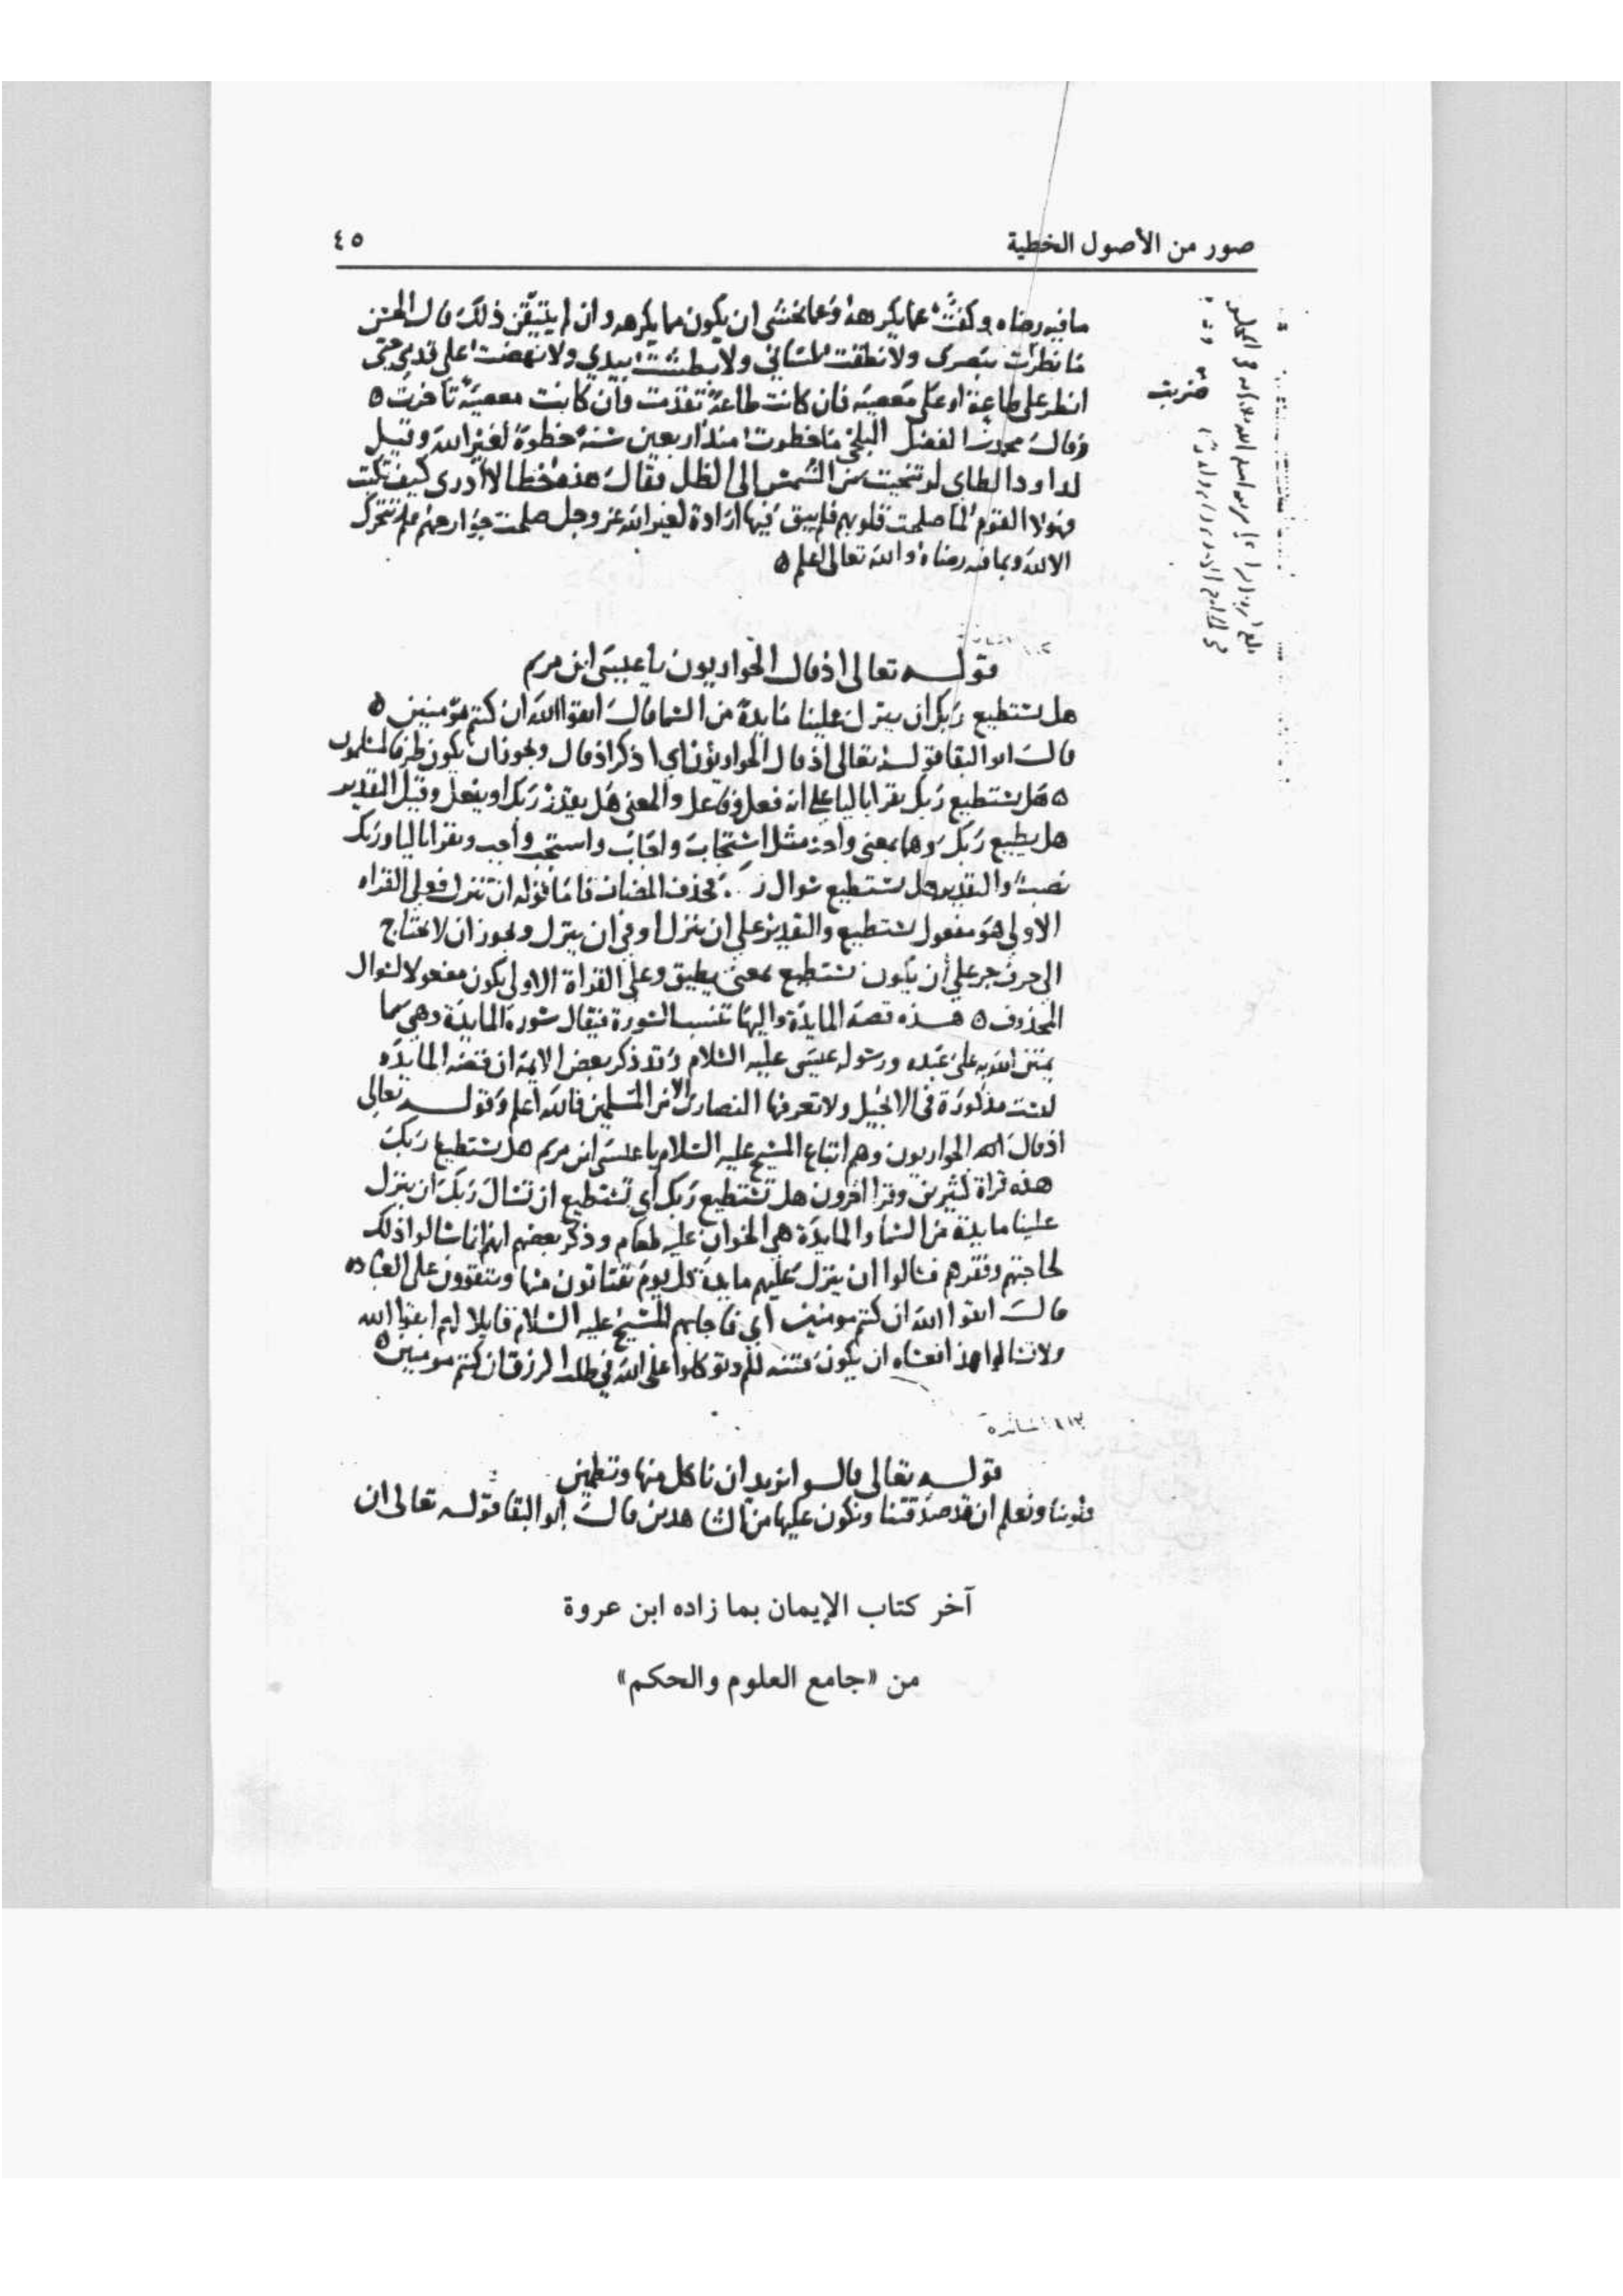 صور من الأصول الخطية
٤٥
ما فيه رضاه وكفت عما يكرهه وعما يخشى ان يكون مما يكرهه وان لم يتيقن ذلك قال الحسن
ما نظرت ببصرى ولا نطقت بلساني ولا بطشت بيدي ولا نهضت على قدمي حتى
انظر على طاعة او على معصية فان كانت طاعة تقدمت وان كانت معصية تاخرت ٥
وقال محمد بن الفضل البلخي ما خطوت منذ اربعين سنة خطوة لغير الله وقيل
لداود الطاى لو تنحيت من الشمس الى الظل فقال هذه خطا لا ادرى كيف تكتب
فهولا القوم لما صلحت قلوبهم فلم يبق فيها ارادة لغير الله عز وجل صلحت جوارحهم فلم تتحرك
الا لله وبما فيه رضاه والله تعالى اعلم ٥
ضربت
قوله تعالى اذ قال الحواريون يا عيسى ابن مريم
هل يستطيع ربك ان ينزل علينا مايدة من السما قال اتقوا الله ان كنتم مومنين ٥
قال ابو البقا قوله تعالى اذ قال الحواريون اي اذكر اذ قال ويجوز ان يكون ظرفا لمسلمون
٥ هل يستطيع ربك يقرا باليا على انه فعل وفاعل والمعنى هل يقدر ربك او يفعل وقيل التقدير
هل يطيع ربك وهما بمعنى واحد مثل استجاب واجاب واستجب واجب ويقرا بالتا وربك
نصب والتقدير هل تستطيع سوال ربك فحذف المضاف فاما قوله ان ينزل فعلى القراه
الاولى هو مفعول يستطيع والتقدير على ان ينزل او في ان ينزل ويجوز ان لا يحتاج
الى حرف جر على ان يكون يستطيع بمعنى يطيق وعلى القراة الاولى يكون مفعولا لسوال
المحذوف ٥ هذه قصة المايدة واليها تنسب السورة فيقال سورة المايدة وهي مما
يمتن الله به على عبده ورسوله عيسى عليه السلام وقد ذكر بعض الايمة ان قصة المايده
ليست مذكورة في الانجيل ولا تعرفها النصارى الا من المسلمين فالله اعلم وقوله تعالى
اذ قال الحواريون وهم اتباع المسيح عليه السلام يا عيسى ابن مريم هل يستطيع ربك
هذه قراة كثيرين وقرا اخرون هل تستطيع ربك اي تستطيع ان تسال ربك ان ينزل
علينا مايدة من السما والمايدة هي الخوان عليه طعام وذكر بعضهم انهم انما سالوا ذلك
لحاجتهم وفقرهم فسالوا ان ينزل عليهم مايدة كل يوم يقتاتون منها ويتقوون على العباده
قال اتقوا الله ان كنتم مومنين اي فاجابهم المسيح عليه السلام قايلا لهم اتقوا الله
ولا تسالوا هذا فعساه ان يكون فتنه لكم وتوكلوا على الله في طلب الرزق ان كنتم مومنين ٥
١١٣ المائدة
قوله تعالى قالوا نريد ان ناكل منها وتطمين
قلوبنا ونعلم ان قد صدقتنا ونكون عليها من الشاهدين قال ابو البقا قوله تعالى ان
آخر كتاب الإيمان بما زاده ابن عروة
من «جامع العلوم والحكم»